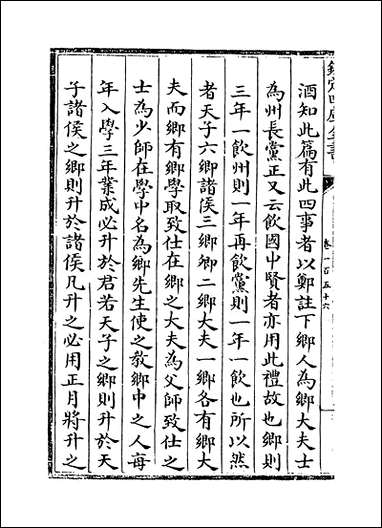 欽定四庫全書
卷一百五十六
酒知此篇有此四事者以鄭註下鄉人為鄉大夫士
為州長黨正又云飲國中賢者亦用此禮故也鄉則
三年一飲州則一年再飲黨則一年一飲也所以然
者天子六鄉諸侯三鄉卿二鄉大夫一鄉各有鄉大
夫而鄉有鄉學取致仕在鄉之大夫為父師致仕之
士為少師在學中名為鄉先生使之教鄉中之人每
年入學三年業成必升於君若天子之鄉則升於天
子諸侯之鄉則升於諸侯凡升之必用正月將升之